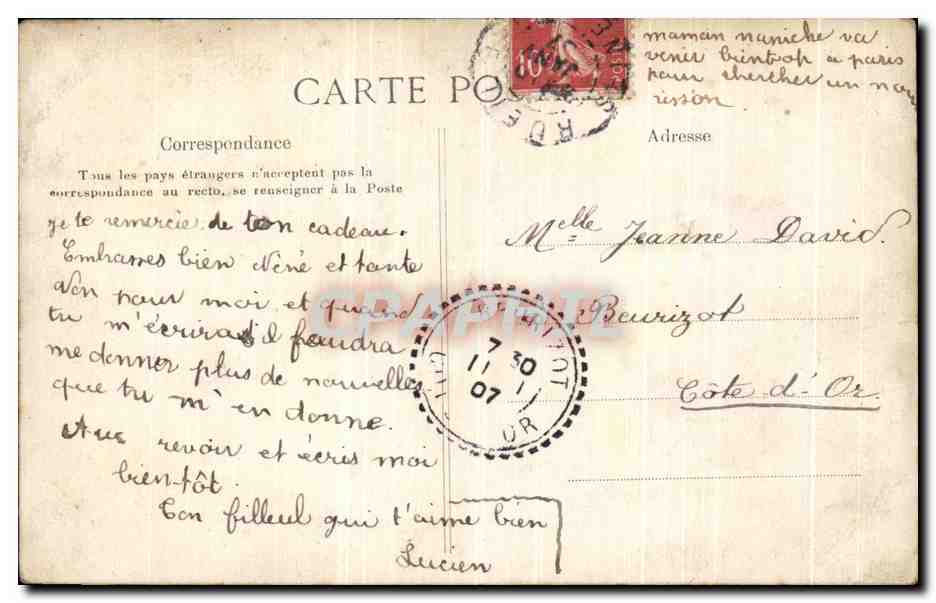 maman naniche va
venir bientot a paris
pour chercher un nou
risson.
10c
CARTE POSTALE
Correspondance
Adresse
Tous les pays étrangers n'acceptent pas la
correspondance au recto, se renseigner à la Poste
je te remercie de ton cadeau.
Embrasses bien Néné et tante
Non pour moi et quand
tu m'écriras il faudra
me donner plus de nouvelles
que tu m'en donne.
Aus revoir et écris moi
bientôt.
Ton filleul qui t'aime bien
Lucien
Melle Jeanne David.
Beurizot
Côte d'Or.
BEURIZOT
7 30
11 1
07
OR
CPARAMA